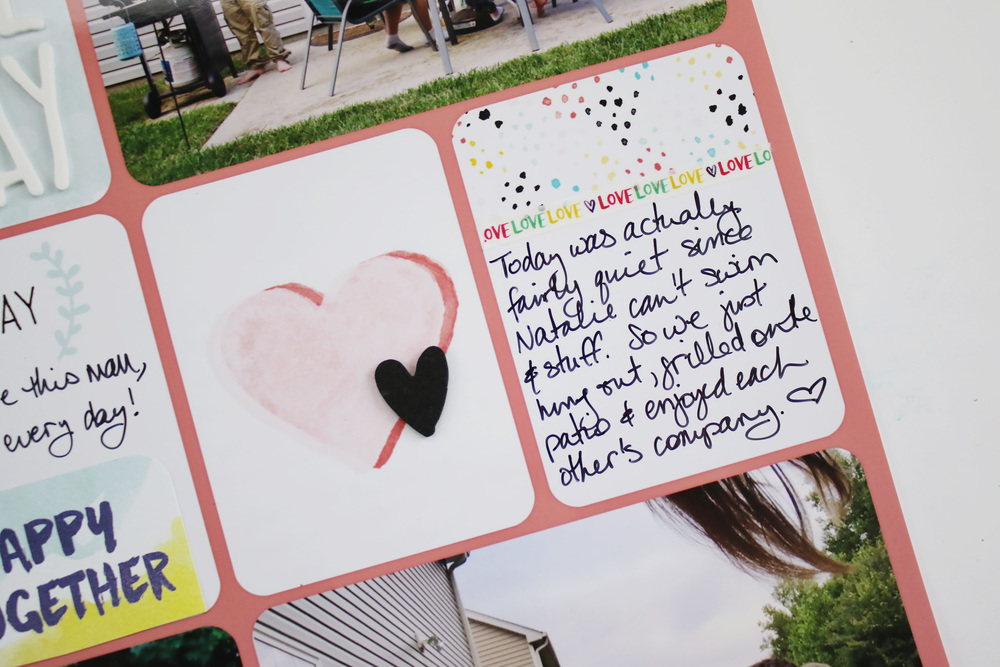 AY
AY
e this man,
every day!
APPY
OGETHER
OVE LOVE LOVE LOVE LOVE LOVE LOVE LO
Today was actually
fairly quiet since
Natalie can't swim
& stuff. So we just
hung out, grilled on the
patio & enjoyed each
other's company.